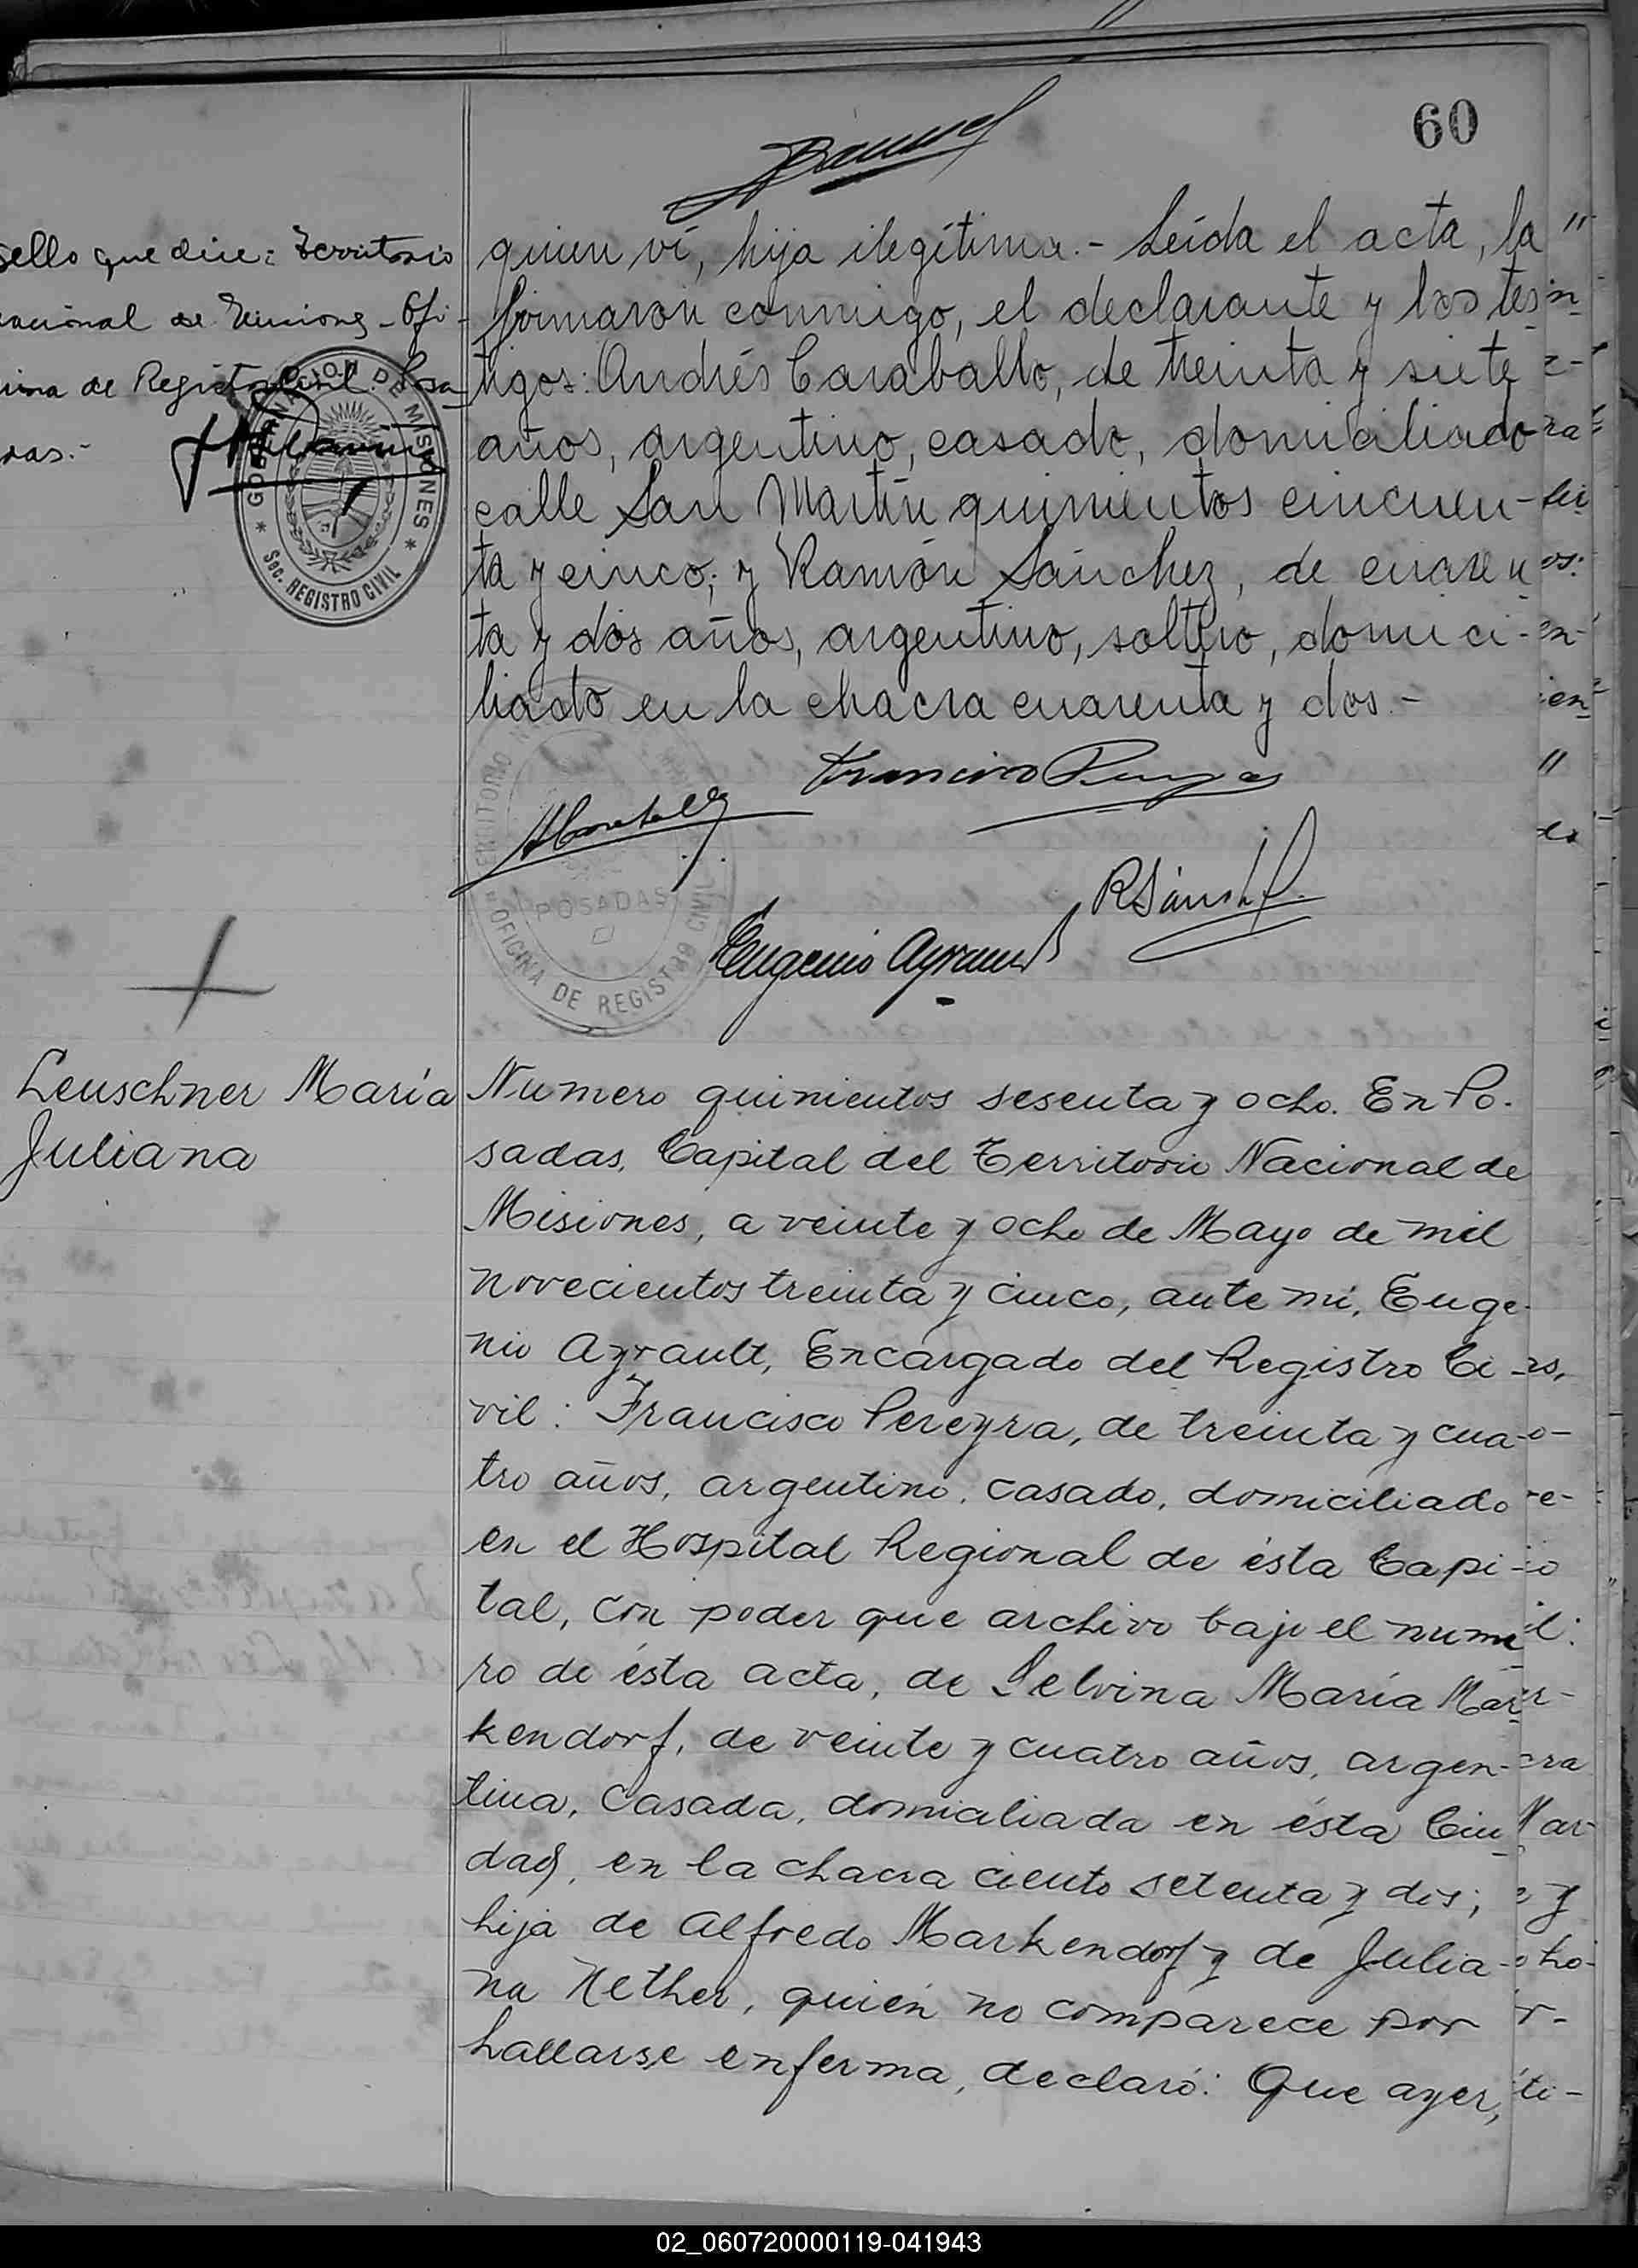 60
sello que dice: Territorio
nacional de Misiones - Ofi-
cina de Registro Civil. Posa
das.-
GOBERNACION DE MISIONES
* Sec. REGISTRO CIVIL *
quien ví, hija ilegítima.- Leída el acta, la
firmaron conmigo, el declarante y los tes
tigos: Andrés Caraballo, de treinta y siete
años, argentino, casado, domiciliado
calle San Martín quinientos cincuen-
ta y cinco; y Ramón Sánchez, de cuaren
ta y dos años, argentino, soltero, domici-
liado en la chacra cuarenta y dos.-
POSADAS
OFICINA DE REGISTRO CIVIL
Eugenio Ayrault
Leuschner María
Juliana
Numero quinientos sesenta y ocho. En Po-
sadas, Capital del Territorio Nacional de
Misiones, a veinte y ocho de Mayo de mil
novecientos treinta y cinco, ante mí, Euge-
nio Ayrault, Encargado del Registro Ci-
vil: Francisco Pereyra, de treinta y cua-
tro años, argentino, casado, domiciliado
en el Hospital Regional de ésta Capi-
tal, con poder que archivo bajo el nume
ro de ésta acta, de Selvina María Mar
kendorf, de veinte y cuatro años, argen-
tina, casada, domiciliada en ésta Ciu
dad, en la chacra ciento setenta y dos;
hija de Alfredo Markendorf y de Julia-
na Nether, quién no comparece por
hallarse enferma, declaró: Que ayer,
02_060720000119-041943